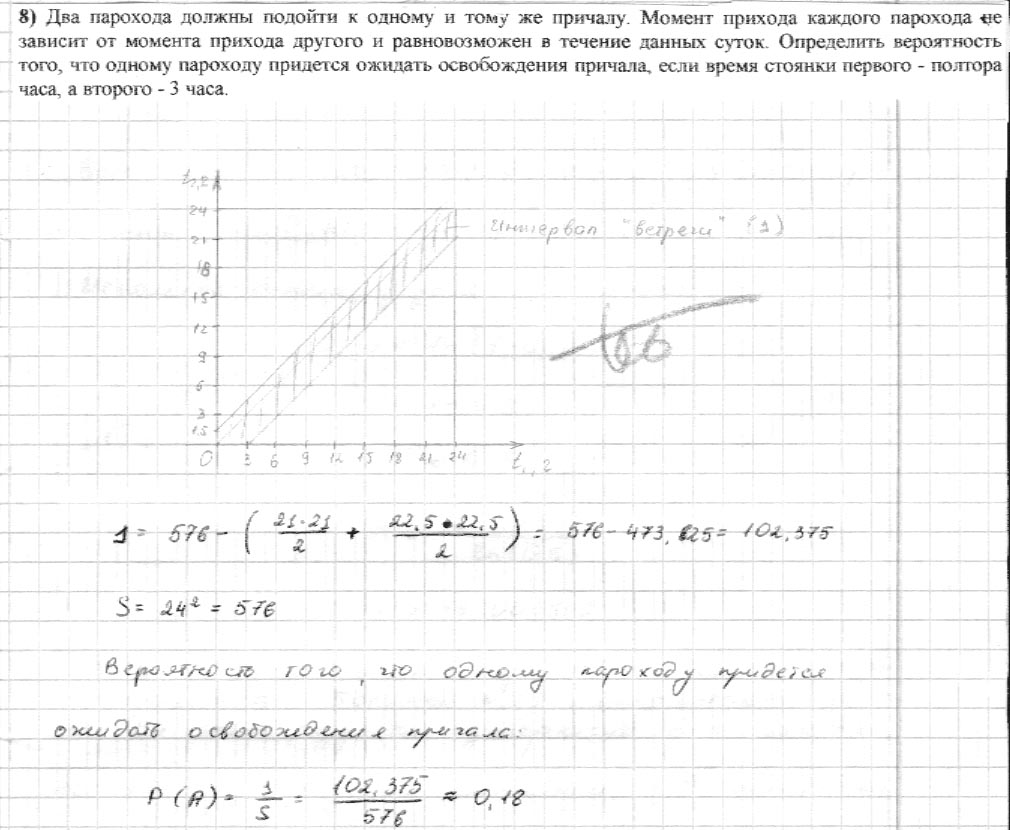 8) Два парохода должны подойти к одному и тому же причалу. Момент прихода каждого парохода не
зависит от момента прихода другого и равновозможен в течение данных суток. Определить вероятность
того, что одному пароходу придется ожидать освобождения причала, если время стоянки первого - полтора
часа, а второго - 3 часа.
t₂, г
24
Интервал "встречи" (1)
21
18
15
12
9
6
3
1.5
0 3 6 9 12 15 18 21 24
t₁, г
1 = 576 - (21·21/2 + 22,5·22,5/2) = 576 - 473,625 = 102,375
S = 24² = 576
Вероятность того, что одному пароходу придется
ожидать освобождения причала:
P(A) = 1/S = 102,375/576 ≈ 0,18